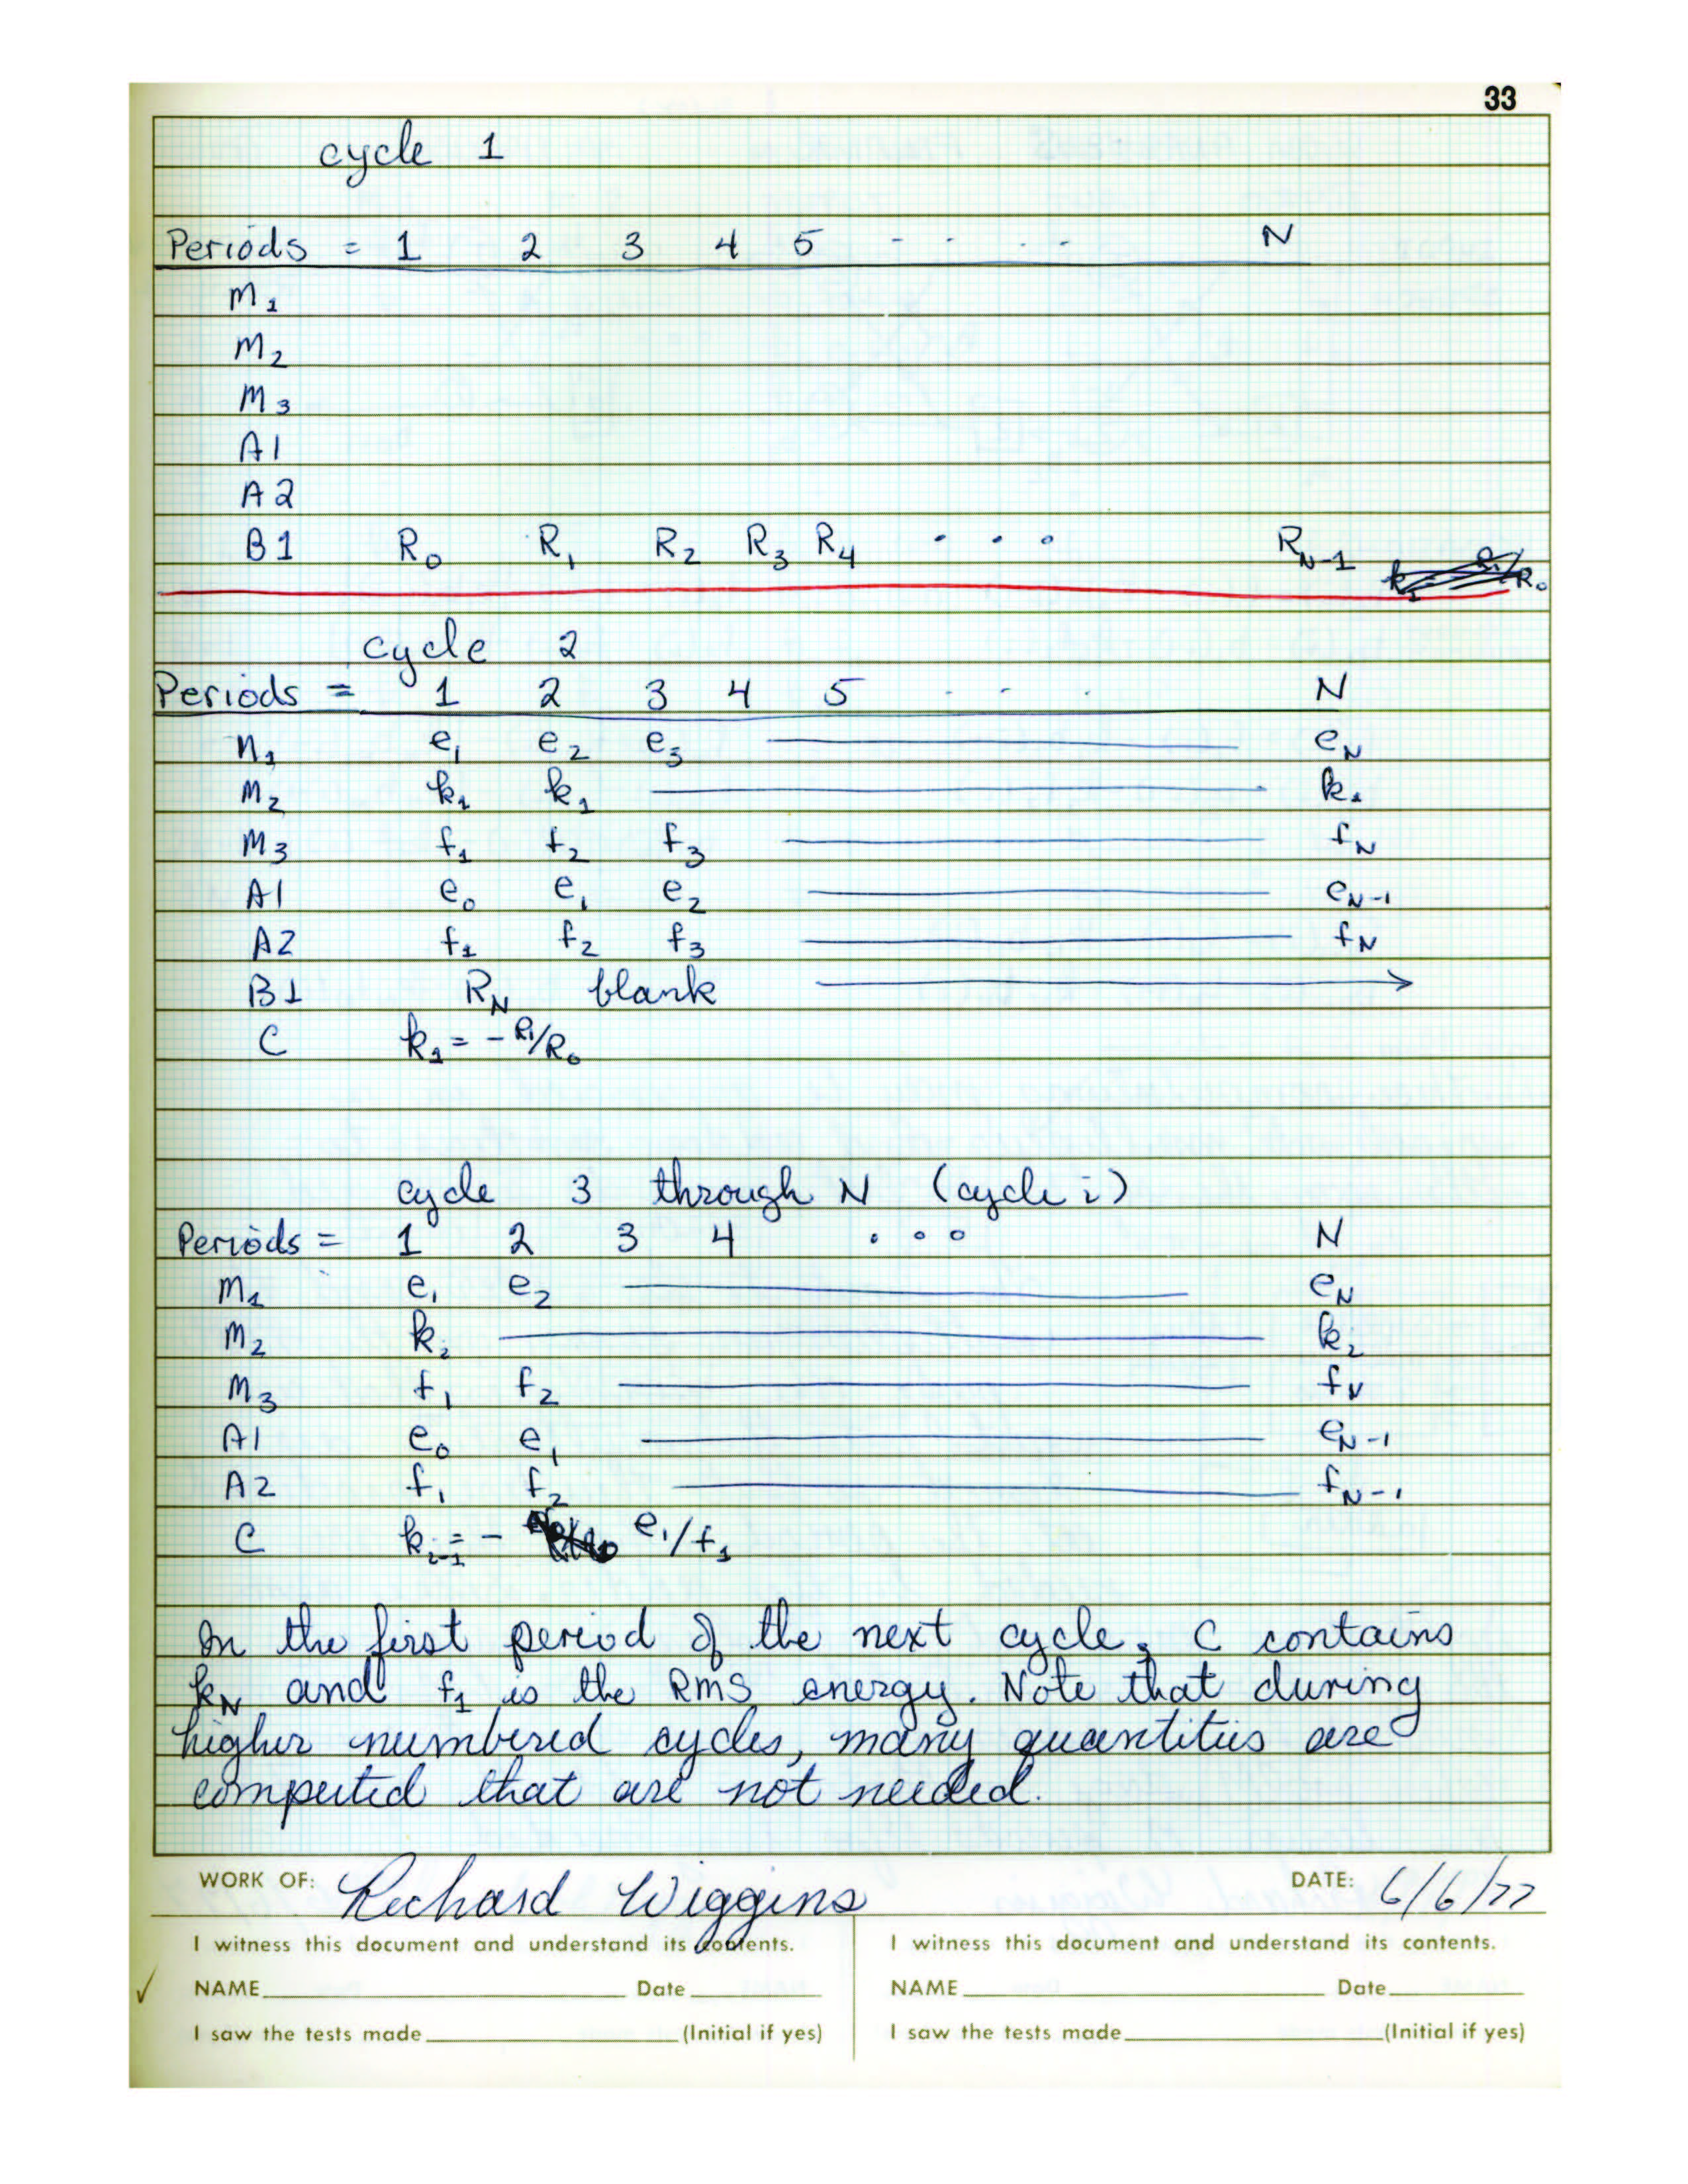 33
cycle 1
Periods = 1 2 3 4 5 - - . . - N
M1
M2
M3
A1
A2
B1 R0 R1 R2 R3 R4 . . . RN-1
cycle 2
Periods = 1 2 3 4 5 . - . N
M1 e1 e2 e3 ——— eN
M2 k1 k1 ——— k1
M3 f1 f2 f3 ——— fN
A1 e0 e1 e2 ——— eN-1
A2 f1 f2 f3 ——— fN
B1 RN blank ———>
C k1 = - R1/R0
cycle 3 through N (cycle i)
Periods = 1 2 3 4 . . . N
M1 e1 e2 ——— eN
M2 ki ——— ki
M3 f1 f2 ——— fN
A1 e0 e1 ——— eN-1
A2 f1 f2 ——— fN-1
C ki-1 = - e1/f1
In the first period of the next cycle, C contains
kN and f1 is the RMS energy. Note that during
higher numbered cycles, many quantities are
computed that are not needed.
WORK OF: Richard Wiggins DATE: 6/6/77
I witness this document and understand its contents. I witness this document and understand its contents.
NAME Date NAME Date
I saw the tests made (Initial if yes) I saw the tests made (Initial if yes)